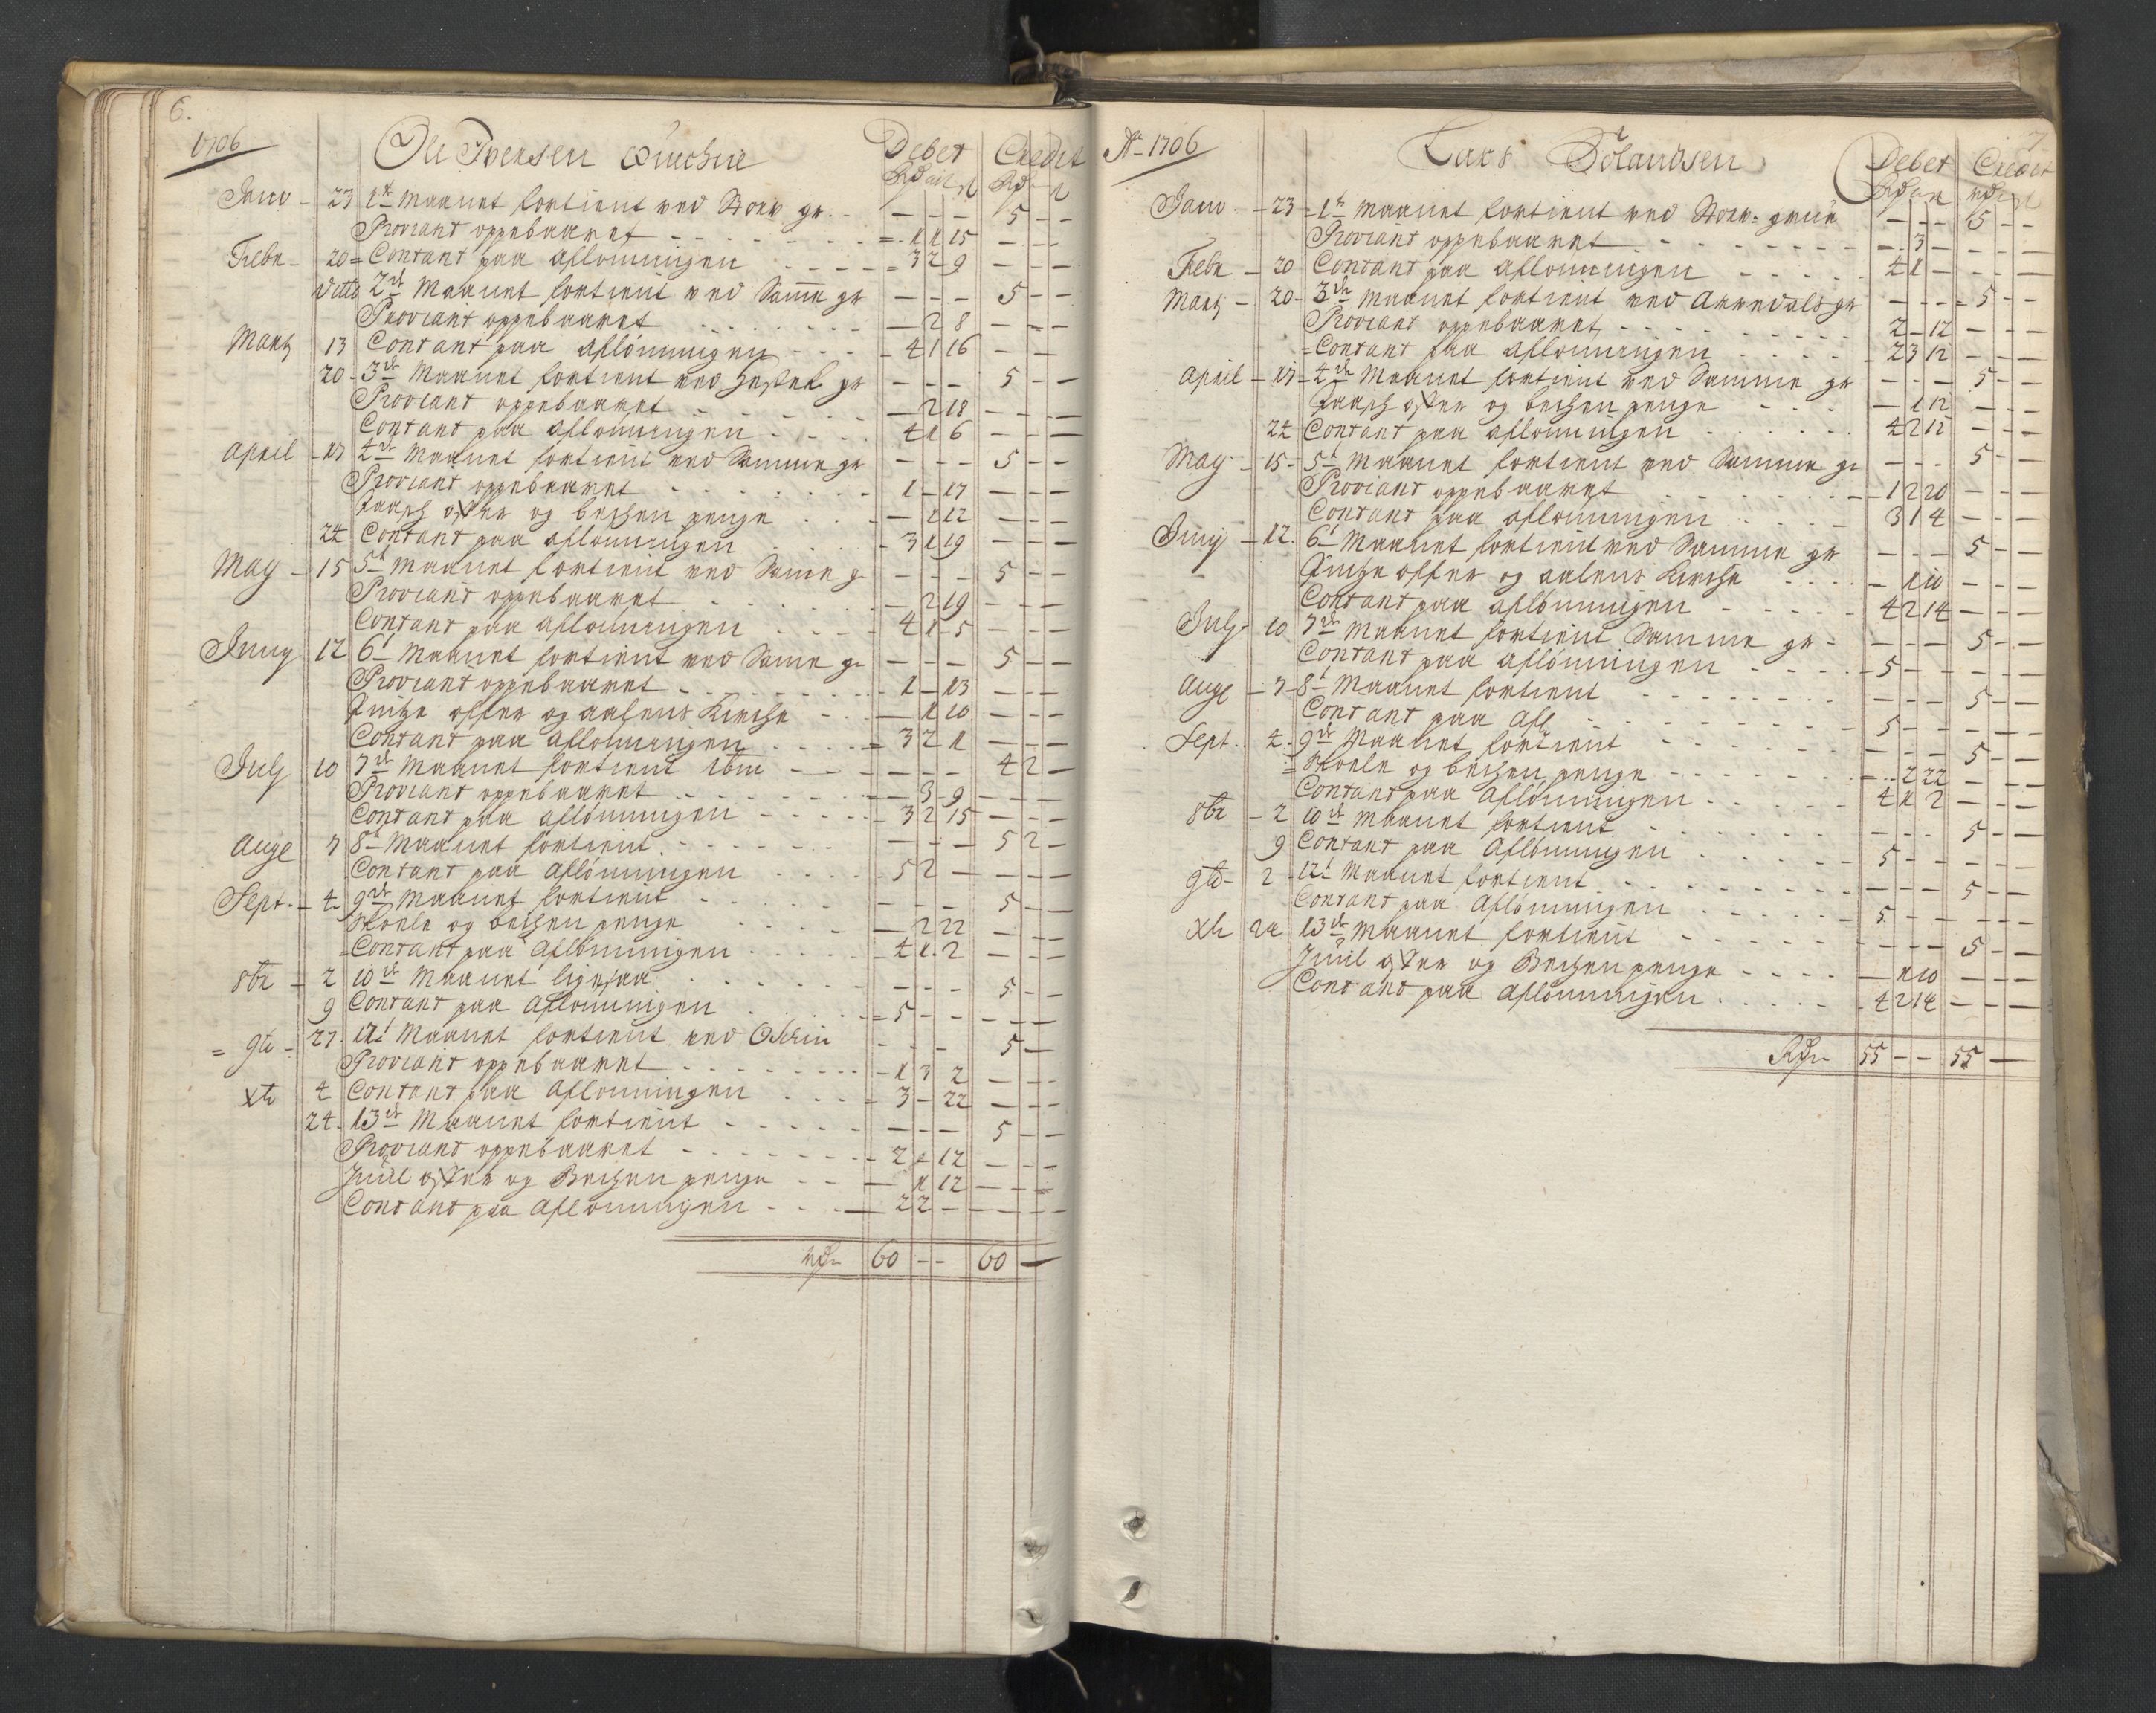 6.
1706 Ole Iversen Debet Credit
Janu - 23 1t Maanet fortient ved Stoer gr. - - - 5 - -
Proviant oppebaaret - 1 1 15 - - -
Febr - 20 Contant paa aflonningen - 3 2 9 - - -
ditto 2de Maanet fortient ved Samme gr - - - 5 - -
Proviant oppebaaret - 2 8 - - -
Marty 13 Contant paa aflønningen - 4 1 16 - - -
20 - 3de Maanet fortient ved gr - - - 5 - -
Proviant oppebaaret - 2 18 - - -
Contant paa aflonningen - 4 1 6 - - -
April - 17 4de Maanet fortient ved Samme gr - - - 5 - -
Proviant oppebaaret - 1 - 17 - - -
offer og penge - 1 12 - - -
24 Contant paa aflonningen - 3 1 19 - - -
May - 15 5t Maanet fortient ved Samme gr - - - 5 - -
Proviant oppebaaret - 2 19 - - -
Contant paa aflonningen - 4 1 5 - - -
Juny 12 6t Maanet fortient ved Samme gr - - - 5 - -
Proviant oppebaaret - 1 - 13 - - -
offer og aalens Kirche - 1 10 - - -
Contant paa aflonningen - 3 2 1 - - -
July 10 7de Maanet fortient ibm - - - 4 2 -
Proviant oppebaaret - 3 9 - - -
Contant paa aflønningen - 3 2 15 - - -
Auge 7 8t Maanet fortient - - - 5 2 -
Contant paa Aflønningen - 5 2 - - - -
Sept. - 4 - 9de Maanet fortient - - - 5 - -
Skoele og penge - 2 22 - - -
Contant paa Aflønningen - 4 1 2 - - -
8br - 2 10de Maanet ligesaa - - - 5 - -
9 Contant paa Aflonningen - 5 - - - - -
= 9br - 27 12t Maanet fortient ved - - - 5 -
Proviant oppebaaret - 1 3 2 - - -
xbr 4 Contant paa Aflonningen - 3 - 22 - - -
24 - 13de Maanet fortient - - - 5 - -
Proviant oppebaaret - 2 - 12 - - -
Juul offer og penge - 1 12 - - -
Contant paa Aflonningen - 2 2 - - - -
Rdr 60 - - 60 -
7
Ao 1706 Lars Debet Credit
Janu - 23 - 1t Maanet fortient ved Stoer= grue - - - 5 - -
Proviant oppebaaret - 3 - - - -
Febr - 20 Contant paa aflonningen 4 1 - - - -
Marty - 20 - 3de Maanet fortient ved Arrendals gr - - - 5 - -
Proviant oppebaaret 2 - 12 - - -
Contant paa aflonningen 2 3 12 - - -
April - 17 - 4de Maanet fortient ved Samme gr - - - 5 - -
offer og penge - 1 12 - - -
24 Contant paa aflonningen 4 2 12 - - -
May - 15 - 5t Maanet fortient ved Samme gr - - - 5 - -
Proviant oppebaaret - 1 2 20 - - -
Contant paa aflonningen 3 1 4 - - -
Juny - 12. 6t Maanet fortient ved Samme gr - - - 5 - -
offer og aalens Kirche - 1 10 - - -
Contant paa aflønningen 4 2 14 - - -
July - 10 7de Maanet fortient Samme gr - - - 5 - -
Contant paa aflønningen - 5 - - - - -
Auge - 7 - 8t Maanet fortient - - - 5 - -
Contant paa Afl 5 - - - - -
Sept. 4 - 9de Maanet fortient - - - 5 - -
= Skoele og penge - 2 22 - - -
Contant paa Aflønningen 4 1 2 - - -
8br - 2 10de Maanet fortient - - - 5 - -
9 Contant paa Aflønningen 5 - - - - -
9br - 2 12t Maanet fortient - - - 5 - -
Contant paa Aflønningen 5 - - - - -
xbr 24 13de Maanet fortient - - - 5 - -
Juul offer og penge - 1 10 - - -
Contant paa Aflønningen 4 2 14 - - -
Rdr 55 - - 55 -